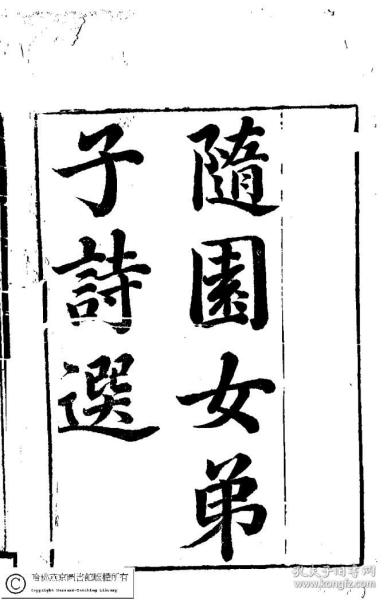 隨園女弟
子詩選
哈佛燕京圖書館版權所有
Copyright Harvard-Yenching Library
孔夫子旧书网
kongfz.com